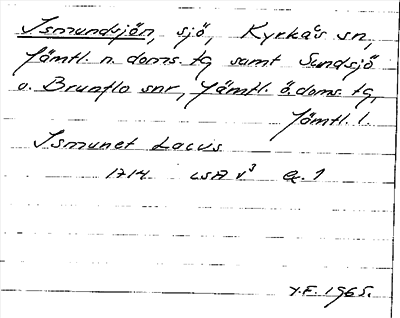 Ismundsjön, sjö, Kyrkås sn,
Jämtl. n. doms. tg samt Sundsjö
o. Brunflo snr, Jämtl. ö. doms. tg,
Jämtl. l.
Ismunet Lacus
1714 LSA v³ 1
Y.F. 1965.